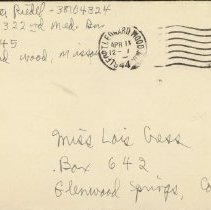 Riedel - 38164324
322nd Med. Bn
45
wood, Missou
FT. LEONARD WOOD, MO.
APR 11
12 - 1
44
Miss Lois Cress
Box 642
Glenwood Springs, Co